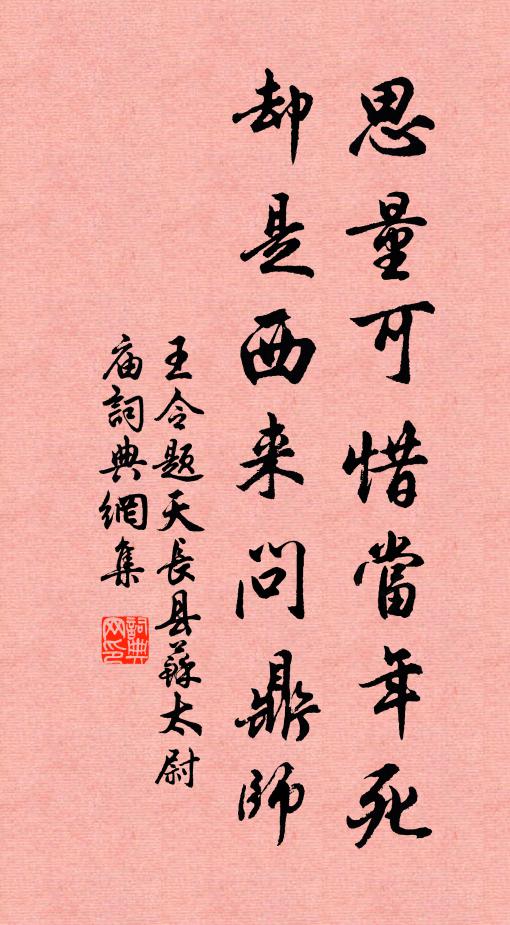 思量可惜當年死
却是西来問鼎師
王令題天長县蘇太尉
庙詞典網集
詞典
网印